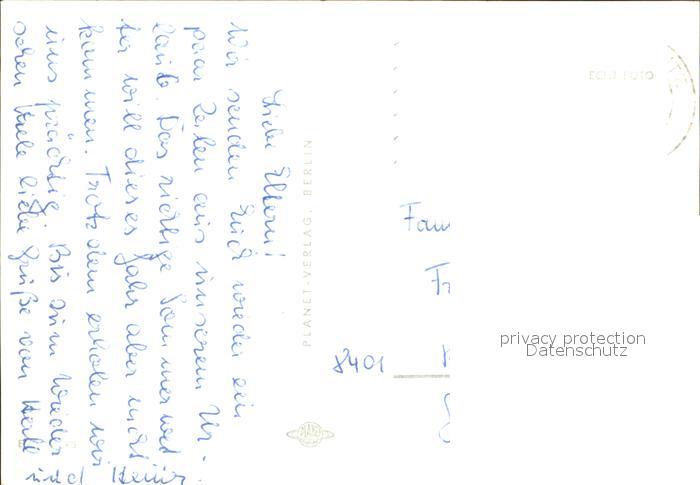 Liebe Eltern!
Wir senden Euch wieder ein
paar Zeilen aus unserem Ur-
laub. Das richtige Sommerwet
ter will dieses Jahr aber nicht
kommen. Trotzdem erholen wir
uns prächtig. Bis zum Wieder
sehen viele liebe Grüße von
und Heinz.
PLANET-VERLAG, BERLIN
ECHT FOTO
Fam
Fr
8401
privacy protection
Datenschutz